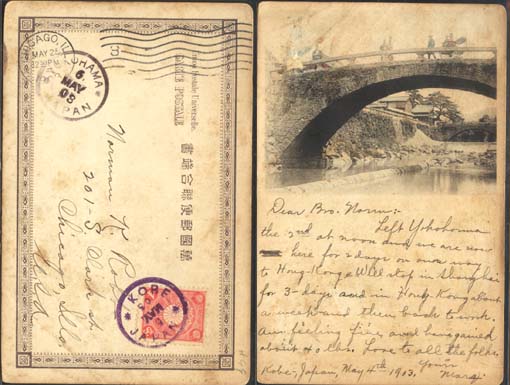 CHICAGO, IL
MAY 2
230 PM
YOKOHAMA
6
MAY
03
JAPAN
Union Postale Universelle.
CARTE POSTALE
萬國郵便聯合端書
Norman K.
201-S. Clark st.
Chicago Ills
U.S.A.
KOBE
MAY
JAPAN
Dear Bro. Norm:-
Left Yokohoma
the 2nd at noon and we are now
here for 2 days on our way
to Hong-Kong & Will stop in Shanghai
for 3 days and in Hong Kong about
a week and then back to work.
Am feeling fine and have gained
about 40 lbs. Love to all the folks.
Yours
Kobe, Japan, May 4th 1903.